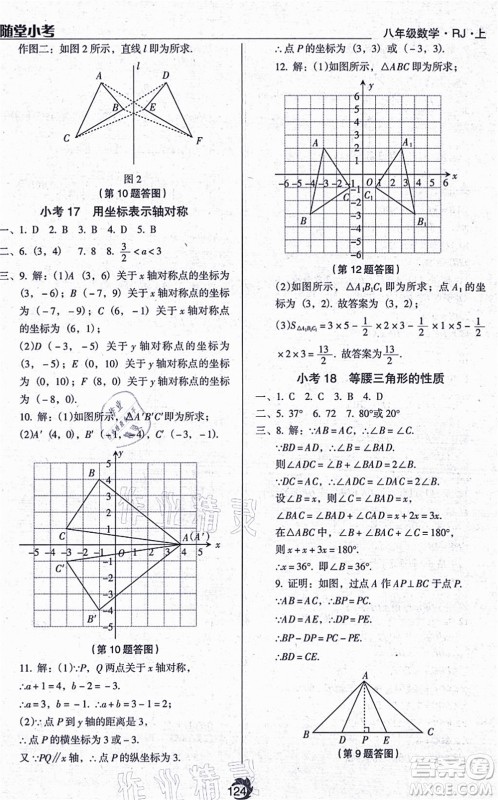 随堂小考
八年级数学·RJ·上
作图二：如图2所示，直线l即为所求.
l
A
D
B
E
C
F
图2
（第10题答图）
小考17 用坐标表示轴对称
一、1. D 2. B 3. D 4. D 5. B
二、6.（3，4） 7. 9 8. 3/2＜a＜3
三、9. 解：(1)A（3，6）关于x轴对称点的坐标为
（3，－6）；B（－7，9）关于x轴对称点的坐标为
（－7，－9）；C（6，－1）关于x轴对称点的
坐标为（6，1）；
(2)D（－3，－5）关于y轴对称点的坐标为
（3，－5）；E（0，10）关于y轴对称点的坐标为
（0，10）；F（8，0）关于y轴对称点的坐标为
（－8，0）.
10. 解：(1)如图所示，△A′B′C′即为所求；
(2)A′（4，0），B′（－1，－4），C′（－3，－1）.
y
B
C
A(A′)
C′
B′
O
x
-5 -4 -3 -2 -1 1 2 3 4 5
（第10题答图）
11. 解：(1)∵P，Q两点关于x轴对称，
∴a＋1＝4，b－2＝－3.
∴a＝3，b＝－1. ∴a＋b＝3－1＝2；
(2)∵点P到y轴的距离是3，
∴点P的横坐标为3或－3.
又∵PQ∥x轴，∴点P的纵坐标为3.
∴点P的坐标为（3，3）或（－3，3）.
12. 解：(1)如图所示，△ABC即为所求；
y
A
A1
B
B1
C
C1
O
x
-6 -5 -4 -3 -2 -1 1 2 3 4 5 6
（第12题答图）
(2)如图所示，△A1B1C1即为所求；
(3)S△A1B1C1＝3×5－1/2×2×3－1/2×1×5－1/2
×2×3＝13/2. 故答案为13/2.
小考18 等腰三角形的性质
一、1. C 2. D 3. B 4. D
二、5. 37° 6. 72 7. 80°或20°
三、8. 解：∵AB＝AC，∴∠B＝∠C.
∵BD＝AD，∴∠B＝∠BAD.
则∠ADC＝∠B＋∠BAD＝2∠B.
设∠B＝x，则∠BAD＝x，∠C＝x.
∴∠ADC＝2x，∠BAC＝x＋2x＝3x.
在△ABC中，∵∠BAC＋∠B＋∠C＝180°，
则x＋x＋3x＝180°.
∴x＝36°. 即∠B＝36°.
9. 证明：如图，过点A作AP⊥BC于点P.
∵AB＝AC，∴BP＝PC.
∵AD＝AE，∴DP＝PE.
∴BP－DP＝PC－PE.
∴BD＝CE.
A
B
D
P
E
C
（第9题答图）
124
作业精灵